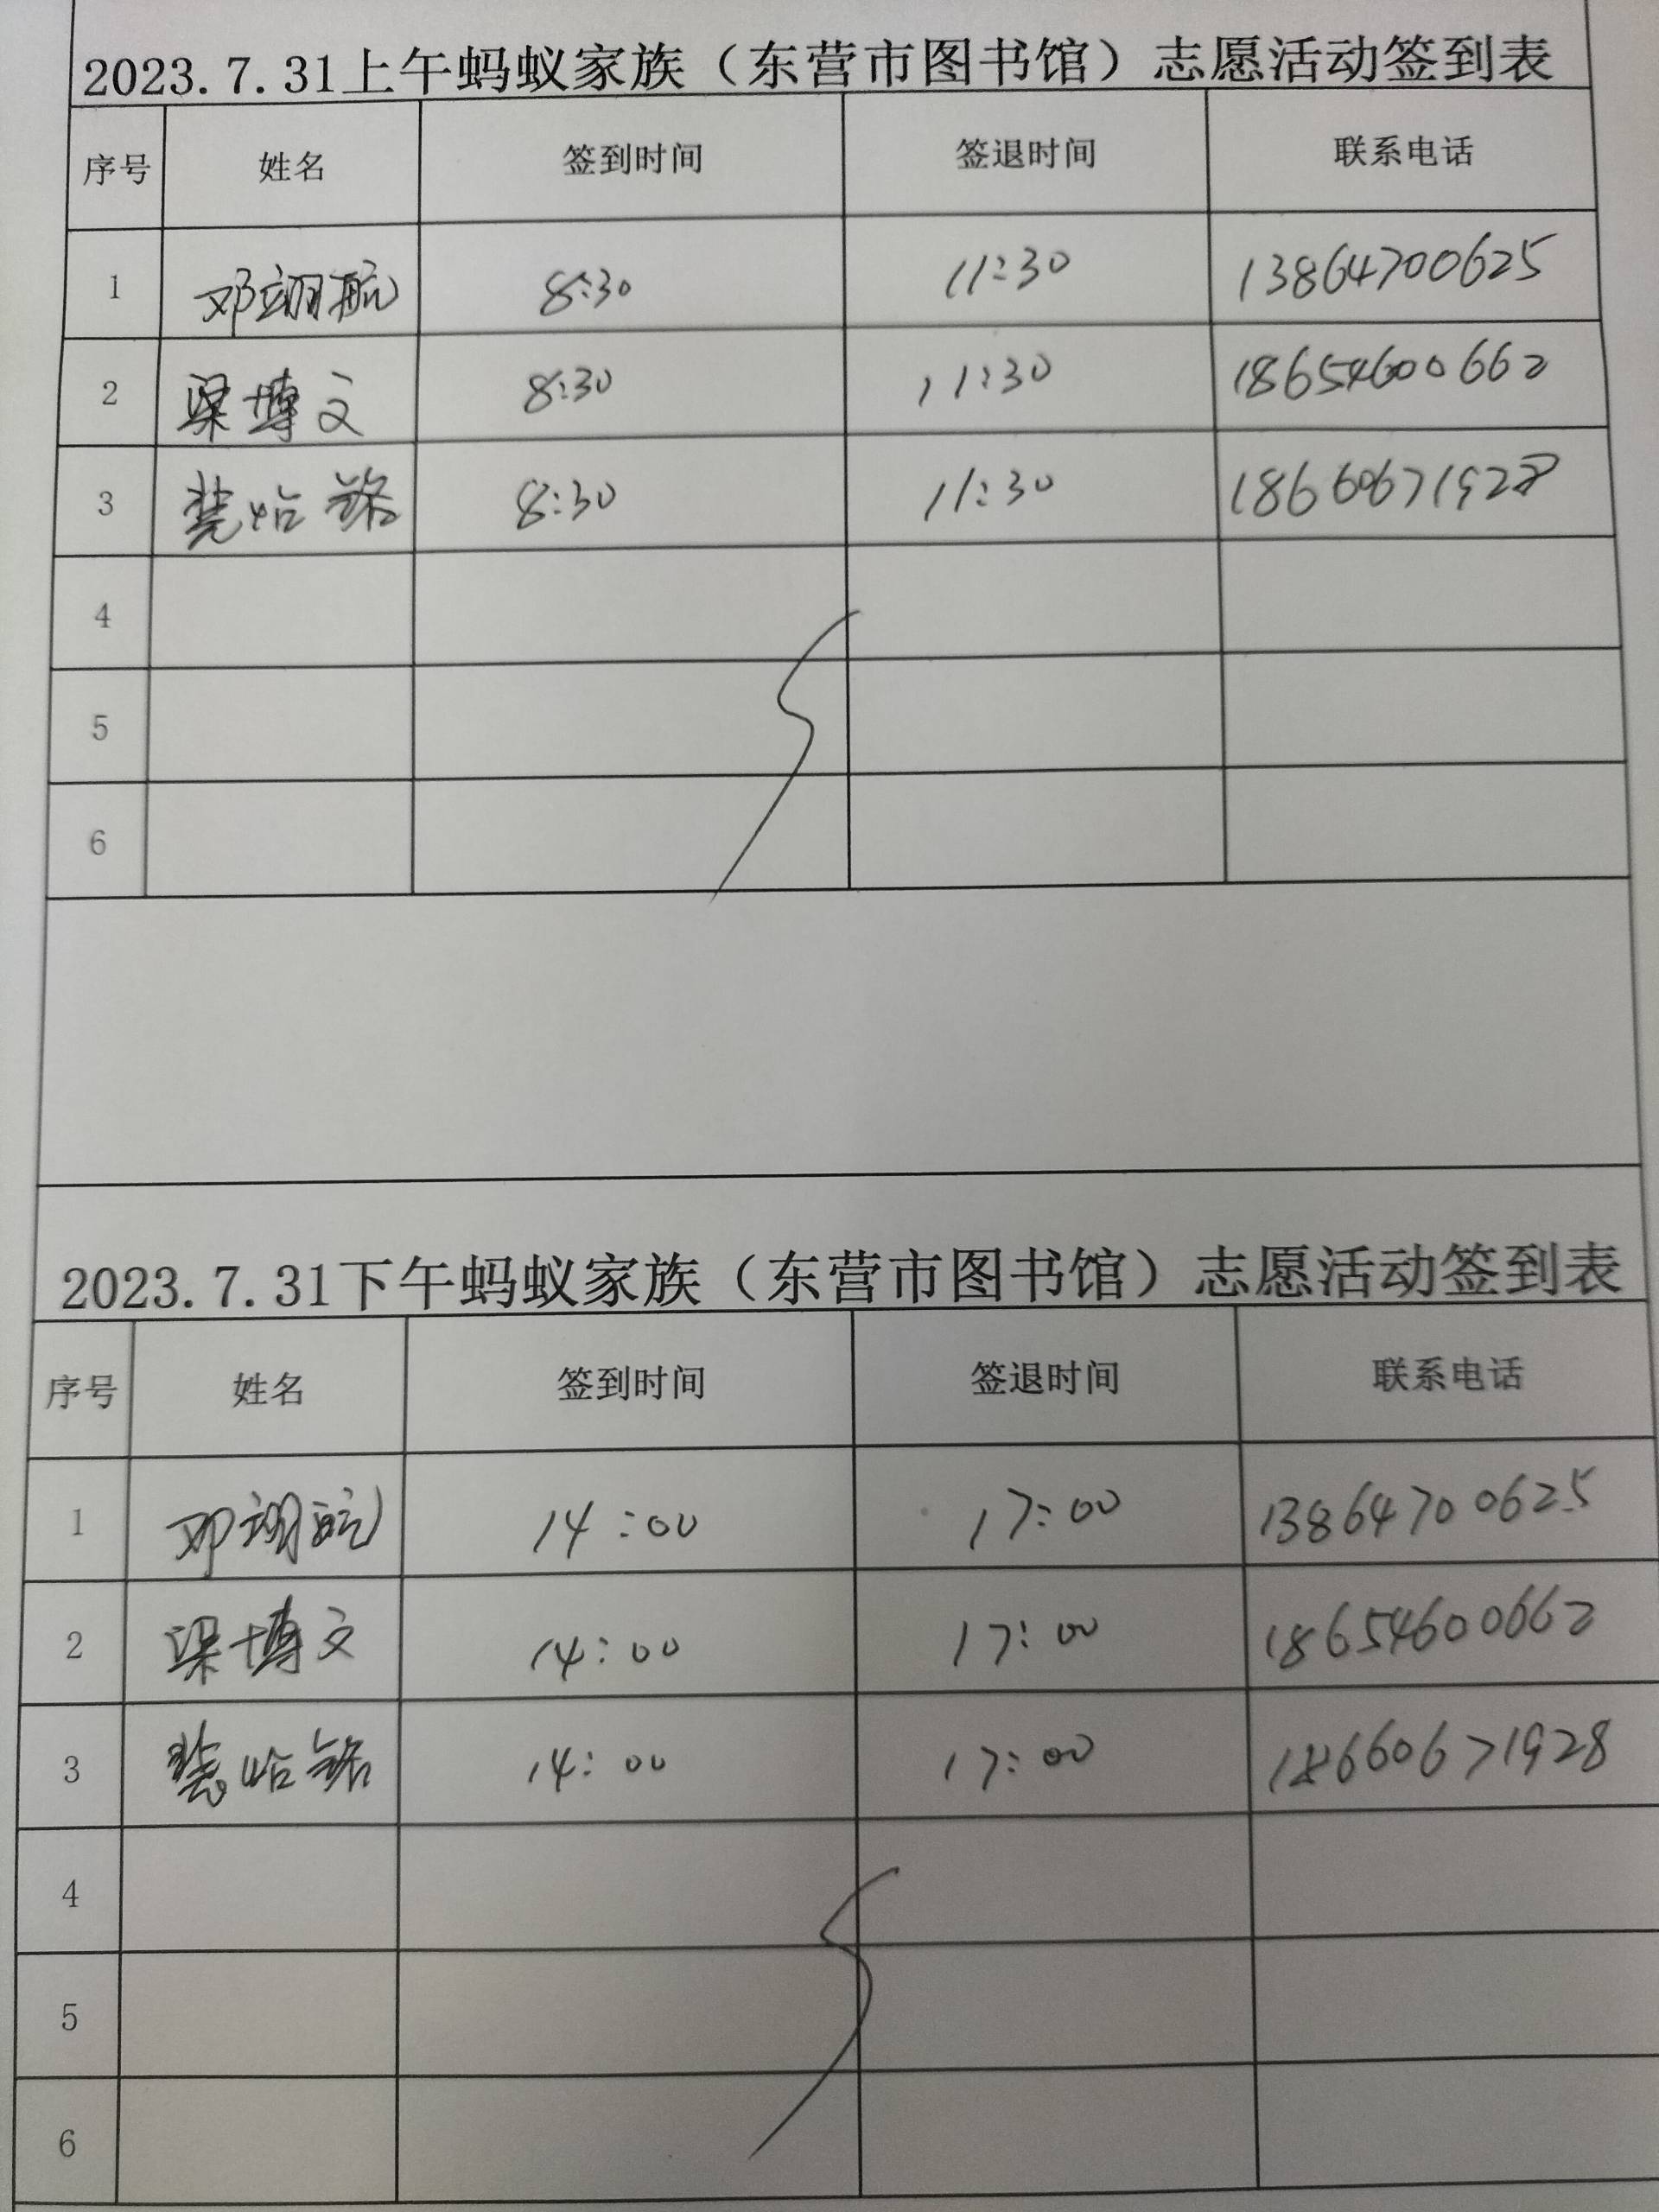 2023.7.31上午蚂蚁家族（东营市图书馆）志愿活动签到表
序号 姓名 签到时间 签退时间 联系电话
1 邓翊航 8:30 11:30 13864700625
2 梁博文 8:30 11:30 18654600662
3 8:30 11:30 18660671928
4
5
6
2023.7.31下午蚂蚁家族（东营市图书馆）志愿活动签到表
序号 姓名 签到时间 签退时间 联系电话
1 邓翊航 14:00 17:00 13864700625
2 梁博文 14:00 17:00 18654600662
3 14:00 17:00 18660671928
4
5
6